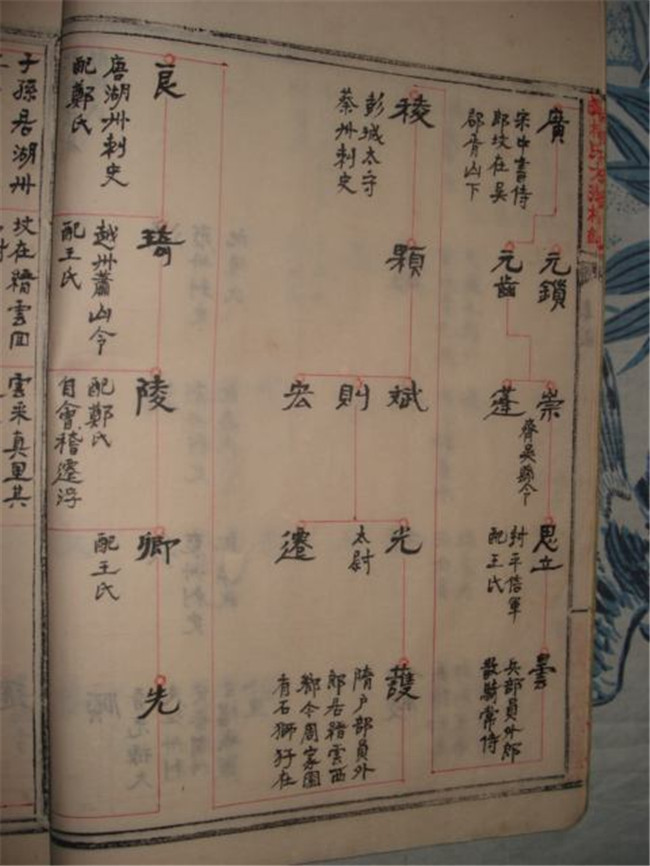 廣
宋中書侍
郎坟在吳
郡胥山下
元鎖
元齒
崇
蓬
齊吳縣令
思立
封平信軍
配王氏
曇
兵部員外郎
散騎常侍
稜
彭城太守
蔡州刺史
顆
斌
則
宏
光
太尉
遷
護
隋户部員外
郎居縉雲西
鄉令周家園
有石獅犴在
良
唐湖州刺史
配鄭氏
琦
越州蕭山令
配王氏
陵
配鄭氏
自會稽遷浮
卿
配王氏
先
子孫居湖州
坟在縉雲囬
雲来真里其